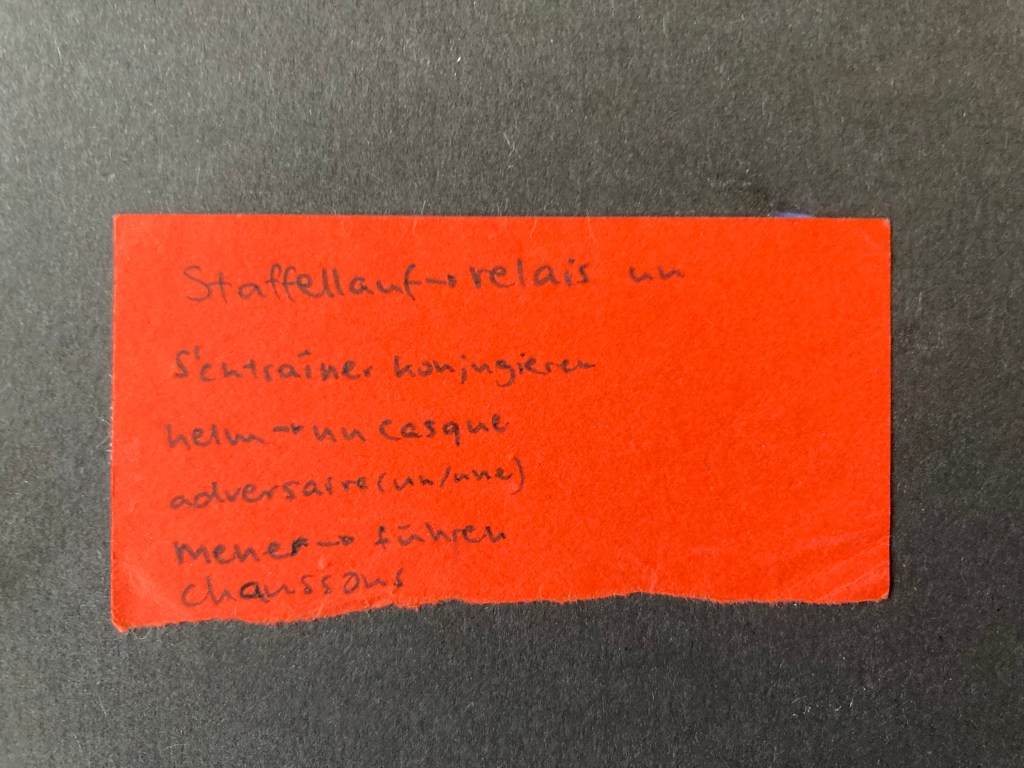 Staffellauf→relais un
S'entraîner konjugieren
helm→un casque
adversaire (un/une)
mener→führen
chaussons